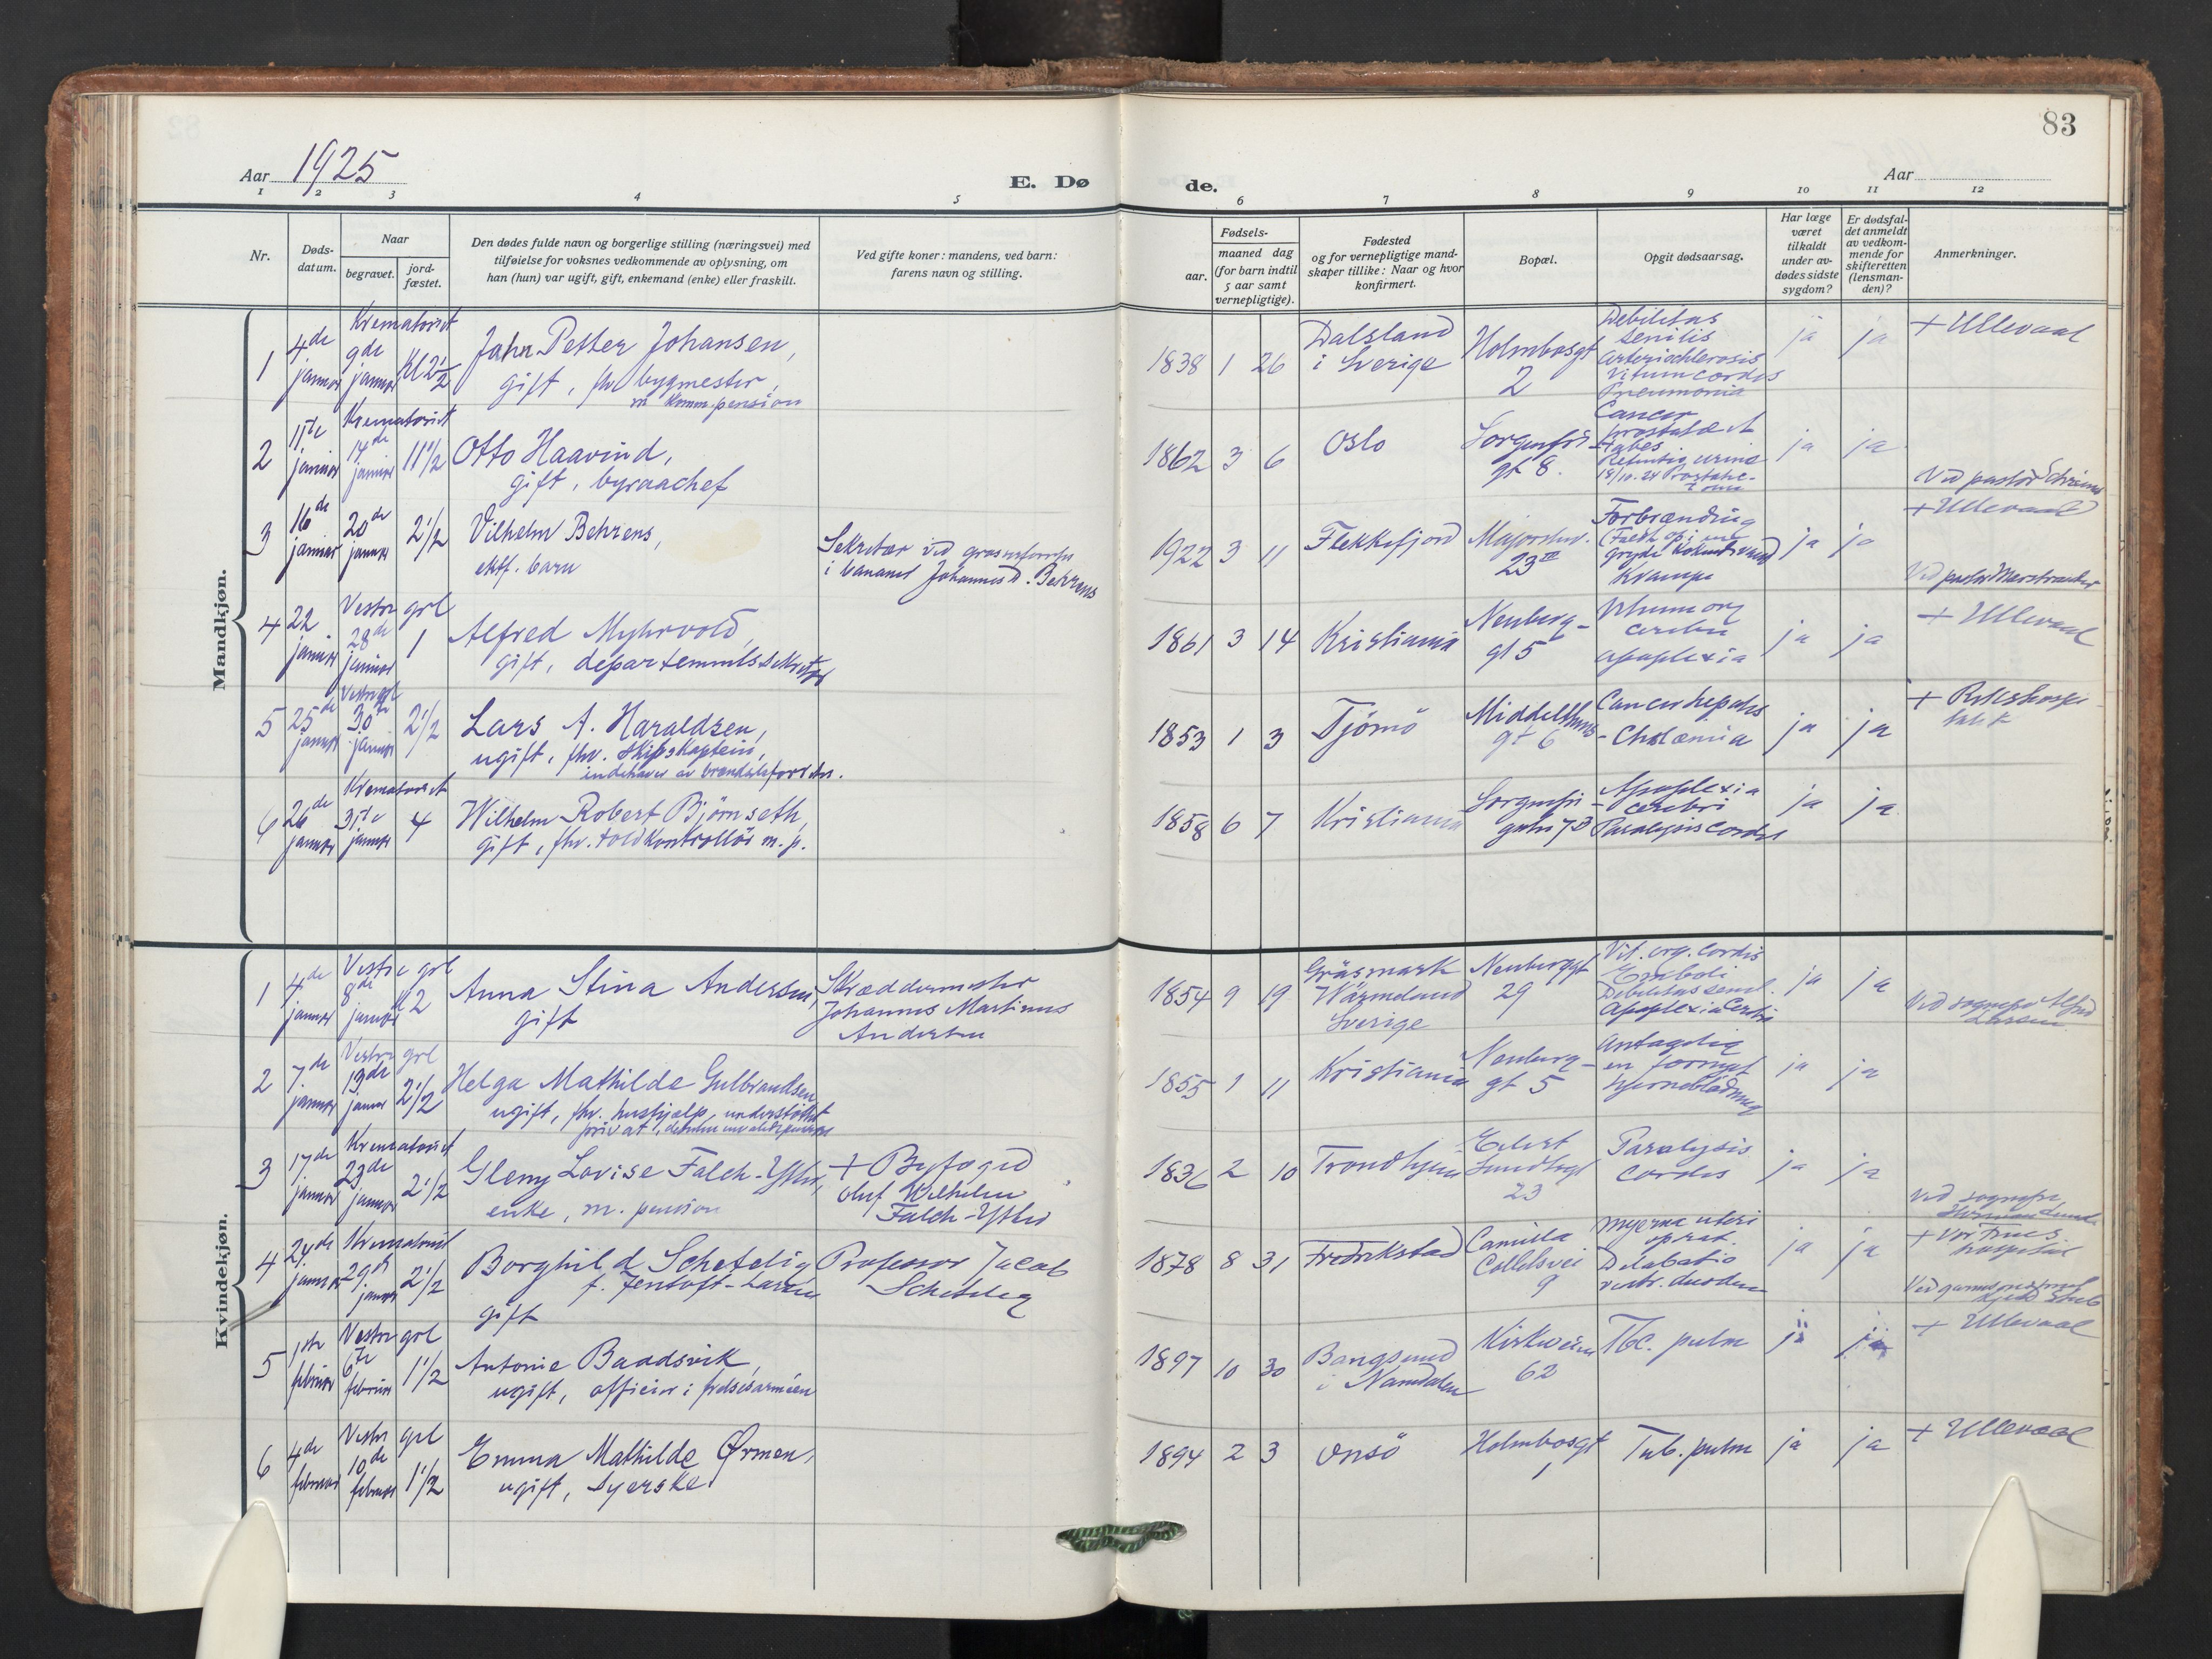 83
Aar 1925
E. Dø de.
Aar
1 2 3 4 5 6 7 8 9 10 11 12
Nr.
Dødsdatum.
Naar
begravet.
jordfæstet.
Den dødes fulde navn og borgerlige stilling (næringsvei) med
tilføielse for voksnes vedkommende av oplysning, om
han (hun) var ugift, gift, enkemand (enke) eller fraskilt.
Ved gifte koner: mandens, ved barn:
farens navn og stilling.
Fødsels-
aar.
maaned dag
(for barn indtil
5 aar samt
vernepligtige).
Fødested
og for vernepligtige mand-
skaper tillike: Naar og hvor
konfirmert.
Bopæl.
Opgit dødsaarsag.
Har læge
været
tilkaldt
under av-
dødes sidste
sygdom?
Er dødsfal-
det anmeldt
av vedkom-
mende for
skifteretten
(lensman-
den)?
Anmerkninger.
Mandkjøn.
1 4de januar
Krematoriet
9de januar Kl 2 1/2
Johan Petter Johansen,
gift, fhv bygmester,
m komm.pension
1838 1 26
Dalsland
i Sverige
Holmbosgt
2
Debilitas
senilis
Vitium cordis
Pneumonia
ja ja
+ Ullevaal
2 11te januar
Krematoriet
14de januar 11 1/2
Otto Haavind,
gift, byraachef
1862 3 6
Oslo
Sorgenfri-
gt 8.
Cancer
prostatæ et
tabes
ja ja
Ved pastor
3 16de januar
20de januar 2 1/2
Vilhelm Behrens,
ektf. barn
Sekretær ved
Johannes D. Behrens
1922 3 11
Flekkefjord
Majorstuv.
23 II
Forbrænding
Krampe
ja ja
+ Ullevaal
Ved pastor Marstrander
4 22 januar
Vestre grl
28de januar 1
Alfred Myhrvold,
gift, departementssekretær
1861 3 14
Kristiania
Neuberg-
gt 5
cerebri
apoplexia
ja ja
+ Ullevaal
5 25de januar
Vestre grl
30te januar 2 1/2
Lars A. Haraldsen,
ugift, fhv. skipskaptein,
indehaver av brændselsforretn.
1853 1 3
Tjømö
Middelthuns
gt 6
Cancer hepatis
- Cholæmia
ja ja
+ Rikshospitalet
6 26de januar
Krematoriet
31te januar 4
Wilhelm Robert Bjørnseth,
gift, fhv. toldkontrollör m. p.
1858 6 7
Kristiania
Sorgenfri-
gaten 7 B
Apoplexia
cerebri
Paralysis cordis
ja ja
Kvindekjøn.
1 4de januar
Vestre grl
8de januar kl 2
Anna Stina Andersen,
gift
Skræddermester
Johannes Martinus
Andersen
1854 9 19
Gräsmark
Wärmeland
Sverige
Neuberggt
29
Vit. org. cordis
Emboli
Debilitas senil.
Apoplexia cerebri
ja ja
Ved sognepr Alfred
Larsen
2 7de januar
Vestre grl
13de januar 2 1/2
Helga Mathilde Gulbrandsen
ugift, fhv. hushjælp, understöttet
privat,
1855 1 11
Kristiania
Neuberg-
gt 5
Antagelig
en fornyet
hjerneblödning
ja ja
3 17de januar
Krematoriet
23de januar 2 1/2
Gleny Lovise Falch-Ytter,
enke, m. pension
+ Byfoged
Oluf Wilhelm
Falch-Ytter
1836 2 10
Trondhjem
Eilert
Sundtsgt
23
Paralysis
cordis
ja ja
Ved sognepr
4 24de januar
Krematoriet
29de januar 2 1/2
Borghild Schetelig
f. Jentoft-Larsen
gift
Professor Jacob
Schetelig
1878 8 31
Fredrikstad
Camilla
Colletsvei
9
Myoma uteri
operat.
Dilatatio
ventr. duoden
ja ja
+ Vor Frues
hospital
5 1ste februar
Vestre grl
6te februar 1 1/2
Antonie Baadsvik,
ugift, officier i frelsesarméen
1897 10 30
Bangsund
i Namdalen
Kirkeveien
62
Tbc. pulm
ja ja
+ Ullevaal
6 4de februar
Vestre grl
10de februar 1 1/2
Emma Mathilde Ørmen,
ugift, syerske
1894 2 3
Onsö
Holmbosgt
1
Tub. pulm
ja ja
+ Ullevaal